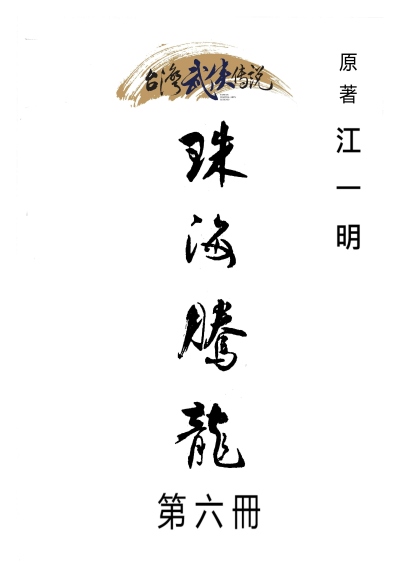 台灣武俠传说
原著 江一明
珠海騰龍
第六冊